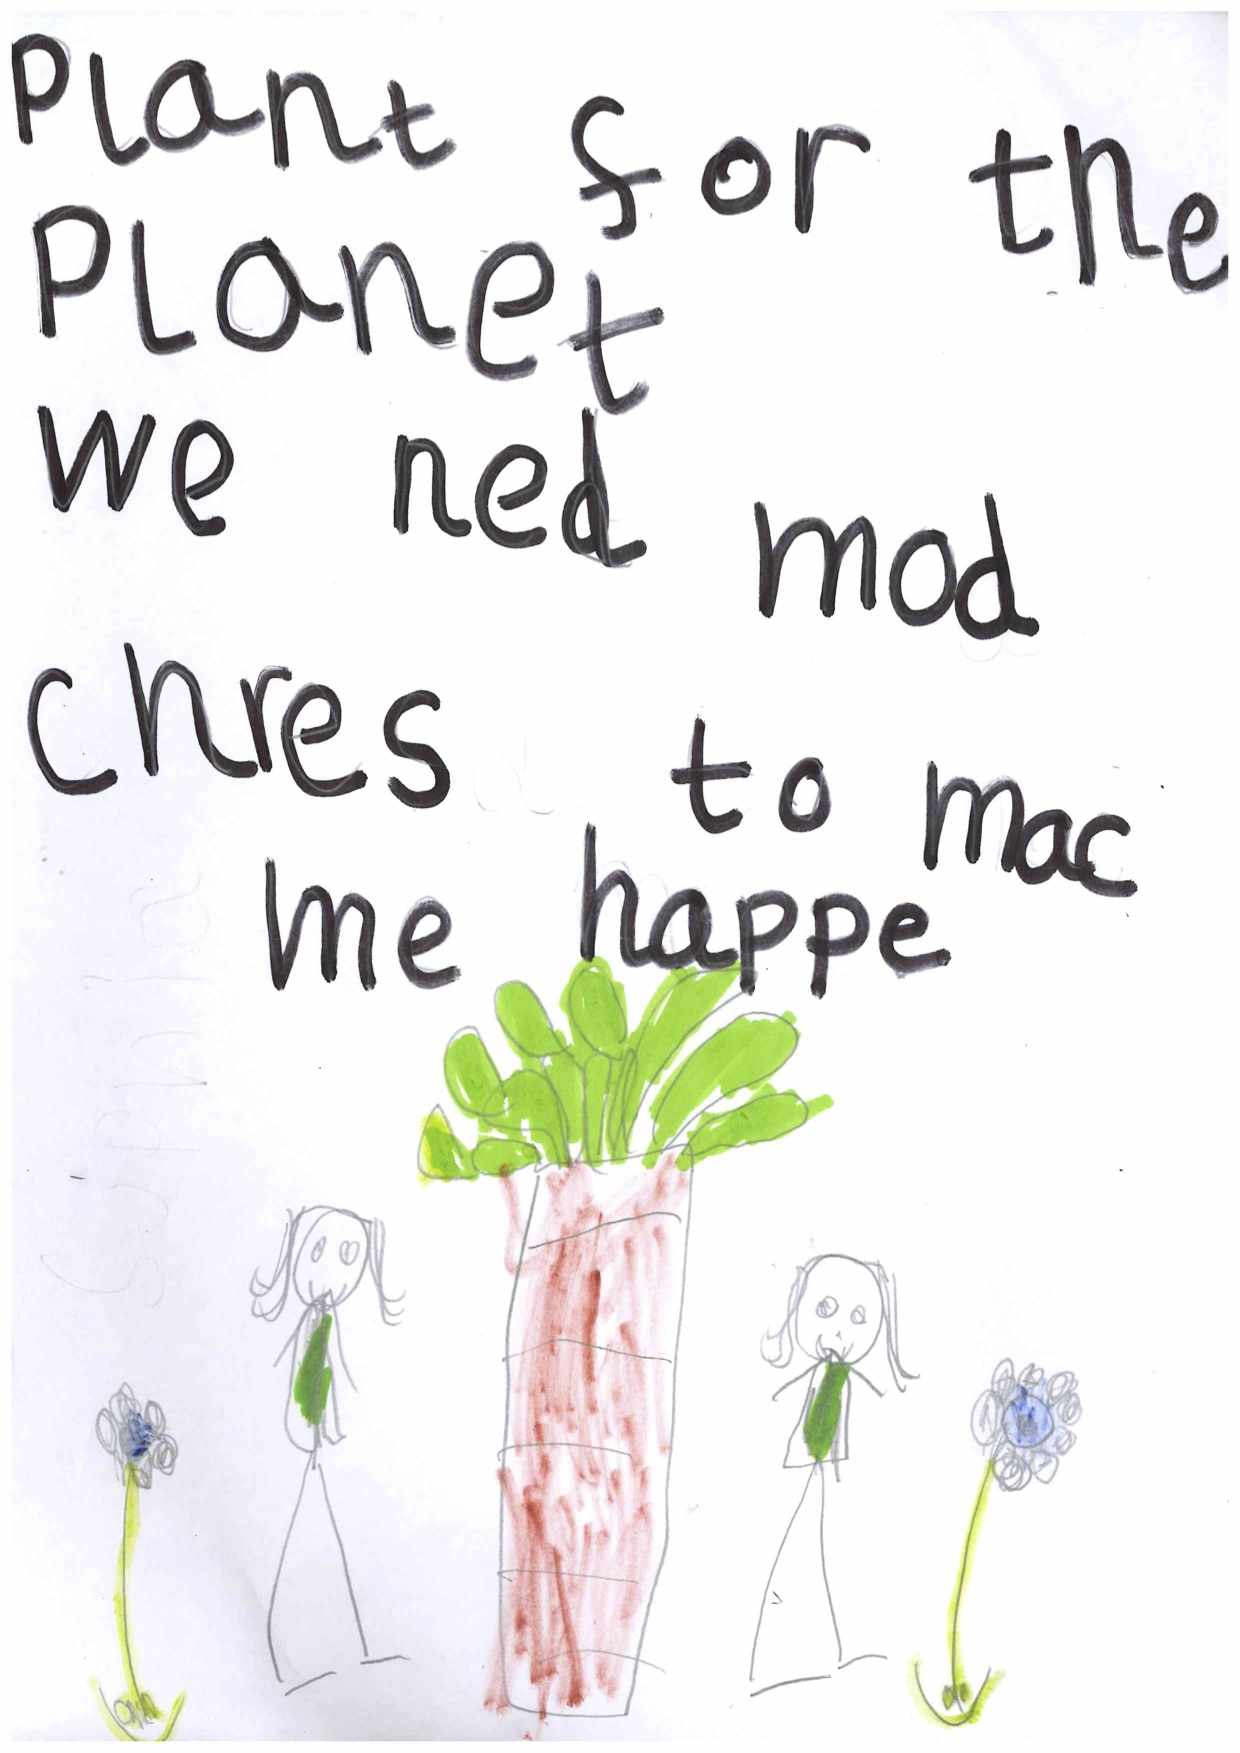 Plant for the
Planet
We ned mod
chres to mac
me happe